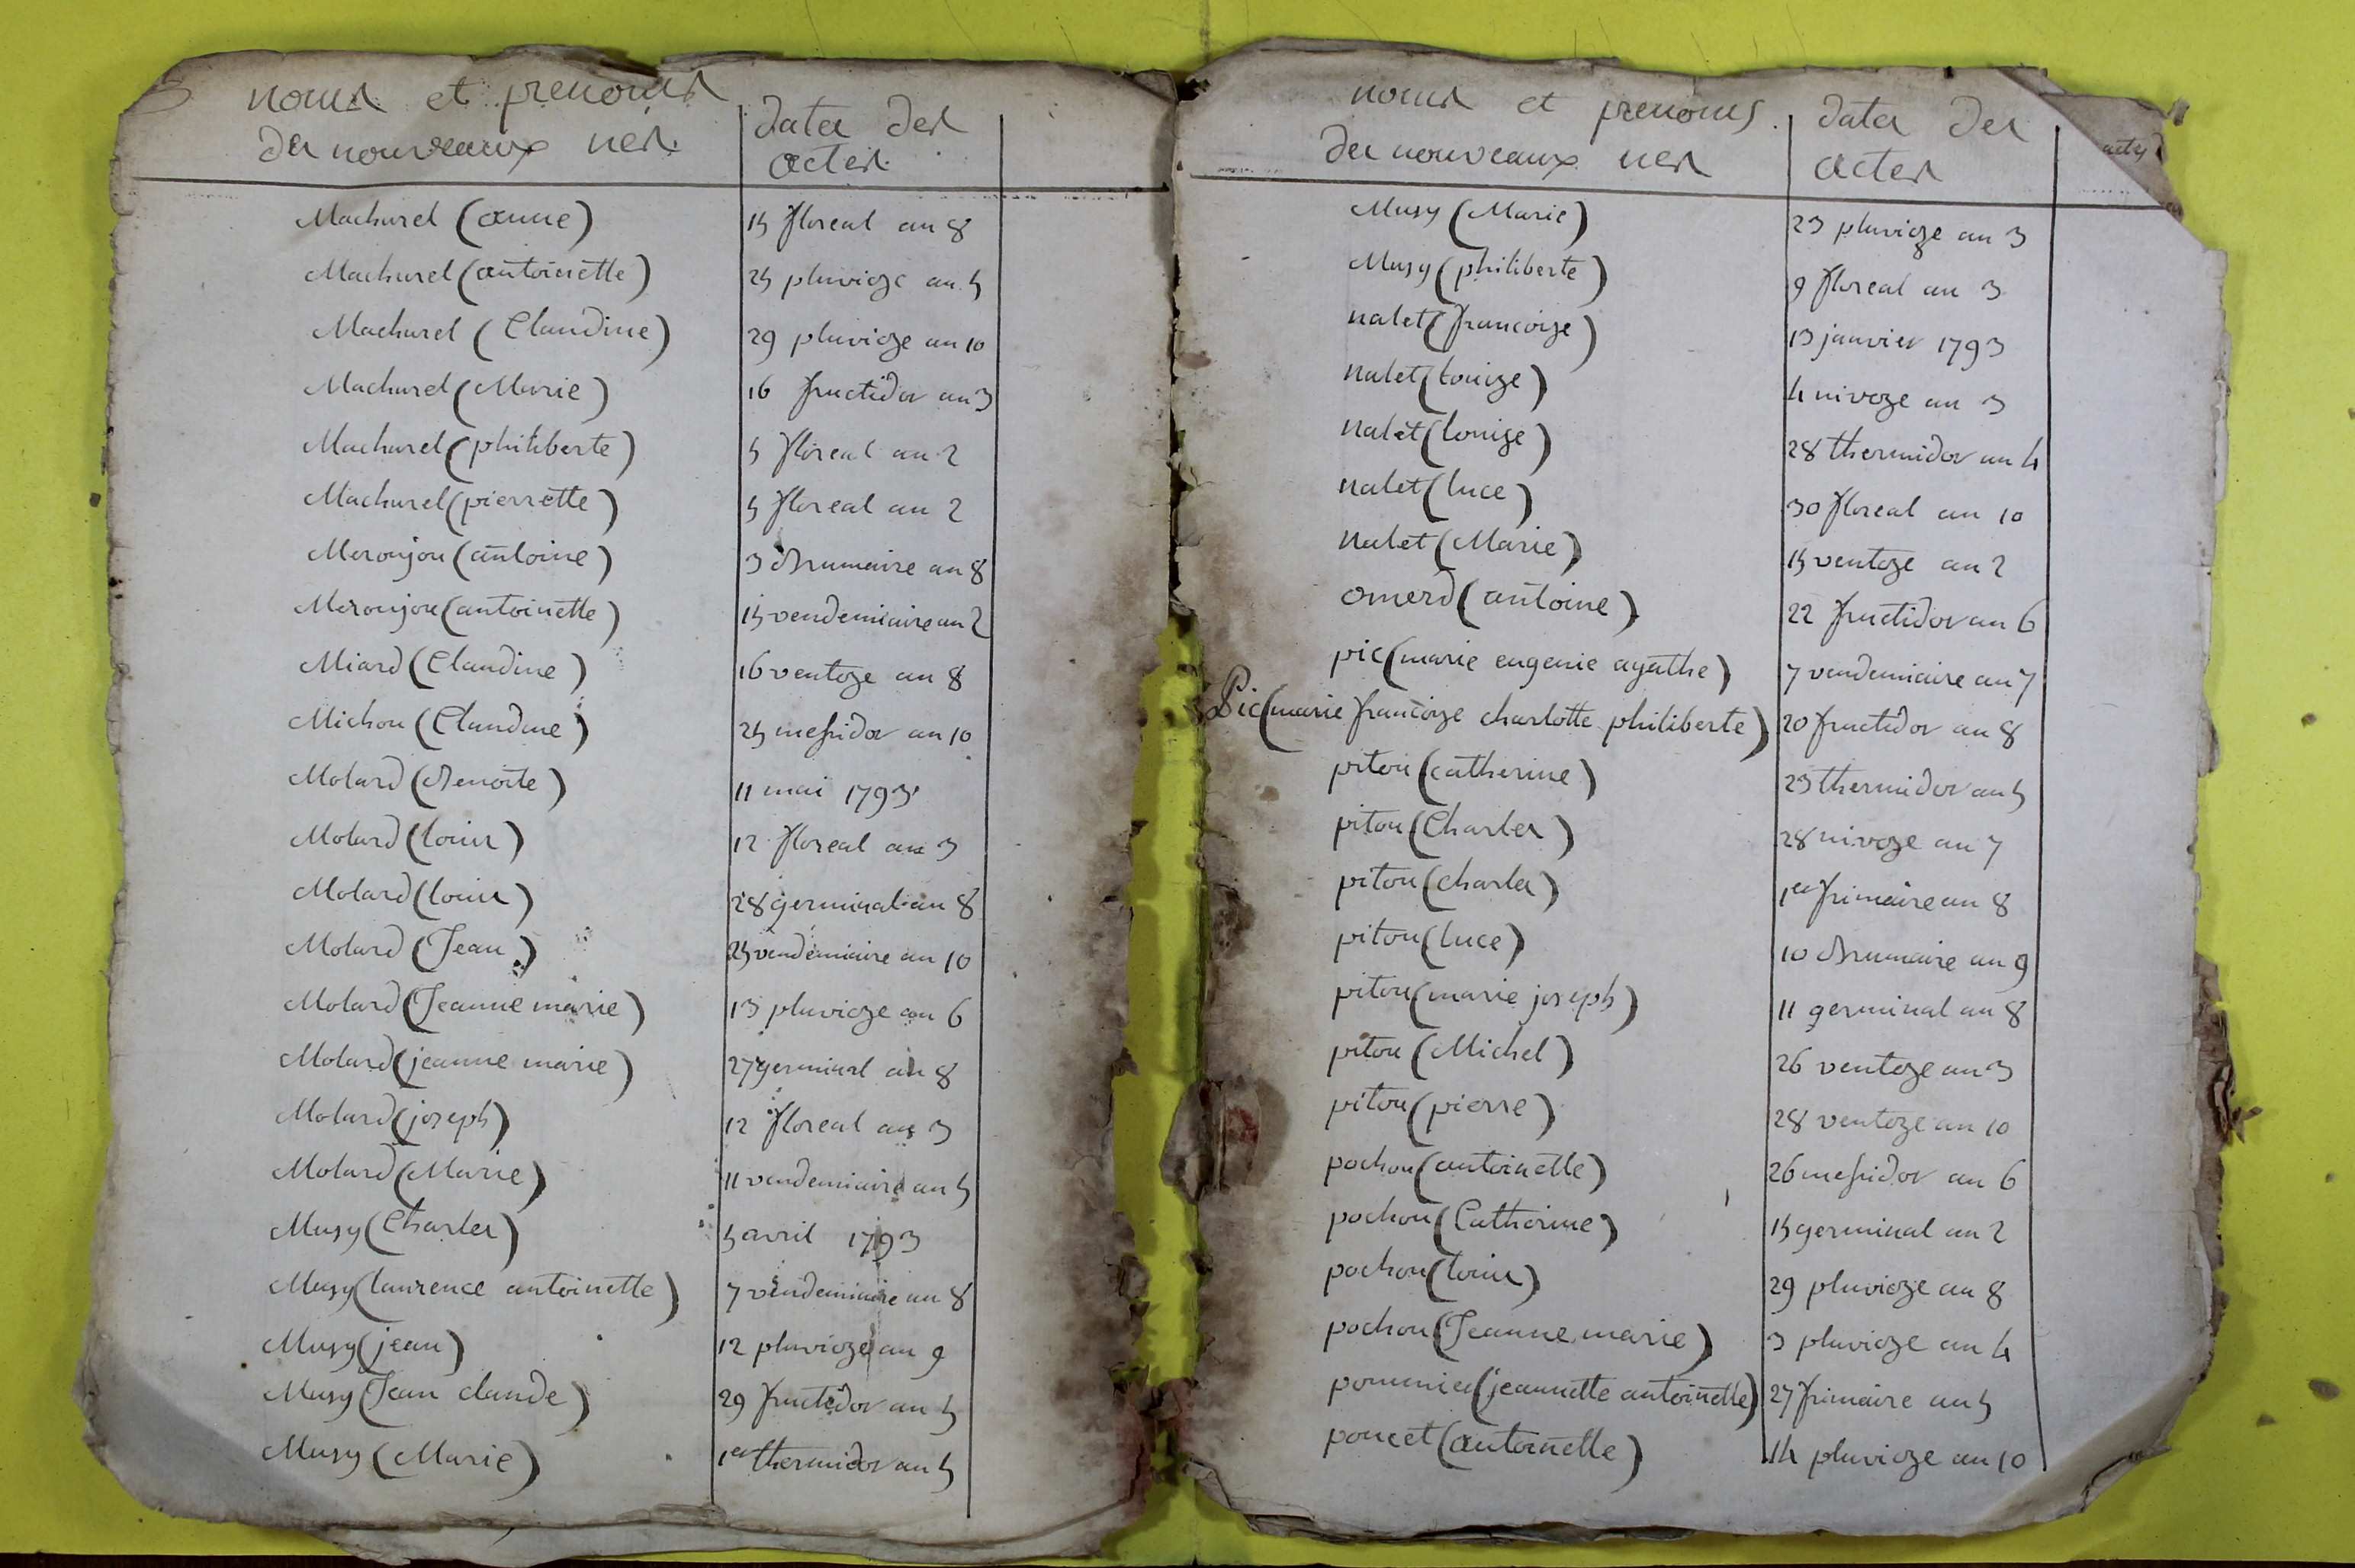 noms et prenoms
des nouveaux nés.
dates des
actes.
Machurel (anne) 15 floreal an 8
Machurel (antoinette) 25 pluvioze an 5
Machurel (Claudine) 29 pluvioze an 10
Machurel (Marie) 16 fructidor an 3
Machurel (philiberte) 5 floreal an 2
Machurel (pierrette) 5 floreal an 2
Meronjon (antoine) 3 Brumaire an 8
Meronjon (antoinette) 15 vendemiaire an 2
Miard (Claudine) 16 ventoze an 8
Michon (Claudine) 25 messidor an 10
Molard (Benoite) 11 mai 1793
Molard (louis) 12 floreal an 3
Molard (louis) 28 germinal an 8
Molard (Jean) 25 vendemiaire an 10
Molard (Jeanne marie) 13 pluvioze an 6
Molard (jeanne marie) 27 germinal an 8
Molard (joseph) 12 floreal an 3
Molard (Marie) 11 vendemiaire an 5
Musy (Charles) 5 avril 1793
Musy (laurence antoinette) 7 vendemiaire an 8
Musy (jean) 12 pluvioze an 9
Musy (Jean claude) 29 fructidor an 5
Musy (Marie) 1er thermidor an 5
noms et prenoms
des nouveaux nes
dates des
actes
actes
Musy (Marie) 23 pluvioze an 3
Musy (philiberte) 9 floreal an 3
nalet (francoize) 13 janvier 1793
nalet (louize) 4 nivoze an 3
nalet (louize) 28 thermidor an 4
nalet (luce) 30 floreal an 10
nalet (Marie) 15 ventoze an 2
omerd (antoine) 22 fructidor an 6
pic (marie eugenie agathe) 7 vendemiaire an 7
Pic (marie francoize charlotte philiberte) 20 fructidor an 8
pitou (catherine) 23 thermidor an 5
pitou (Charles) 28 nivoze an 7
pitou (charles) 1er frimaire an 8
pitou (luce) 10 Brumaire an 9
pitou (marie joseph) 11 germinal an 8
pitou (Michel) 26 ventoze an 3
pitou (pierre) 28 ventoze an 10
pochon (antoinette) 26 messidor an 6
pochon (Catherine) 15 germinal an 2
pochon (louis) 29 pluvioze an 8
pochon (Jeanne marie) 3 pluvioze an 4
pommier (jeannette antoinette) 27 frimaire an 5
poncet (antoinette) 14 pluvioze an 10